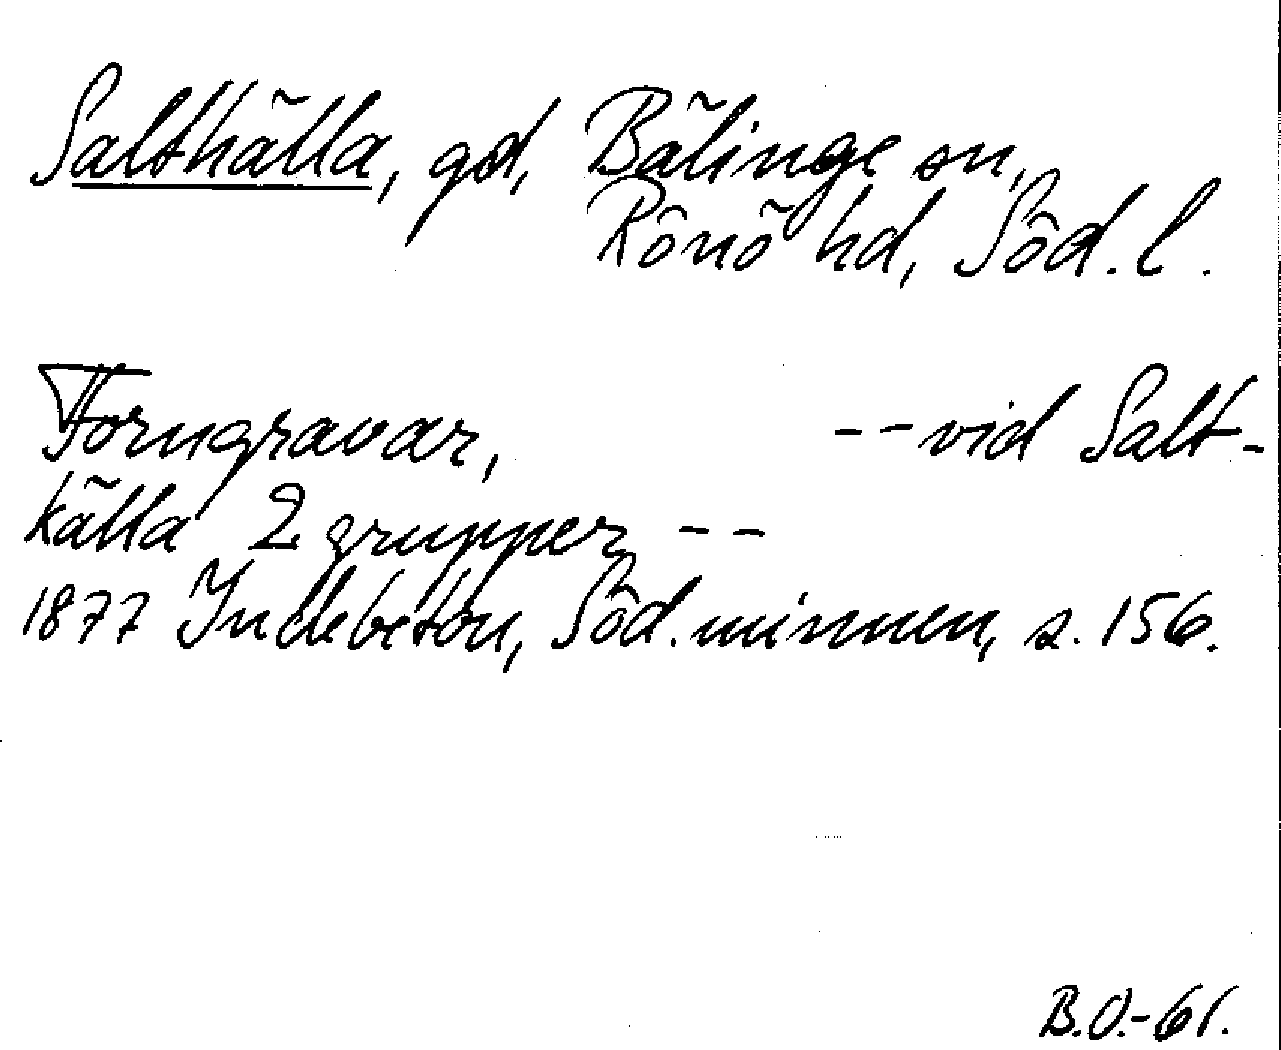 Saltkälla, gd, Bälinge sn,
Rönö hd, Söd. l.
Forngravar, -- vid Salt-
källa 2 grupper --
1877 Indebetou, Söd. minnen, s. 156.
B.O.-61.